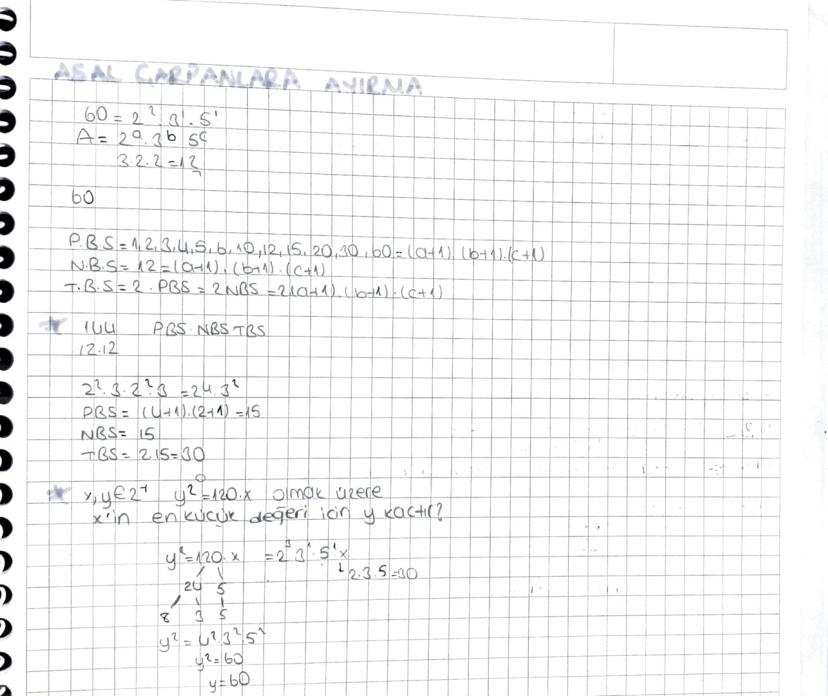 ASAL ÇARPANLARA AYIRMA
60 = 2².3¹.5¹
A = 2ᵃ.3ᵇ 5ᶜ
3.2.2 = 12
60
P.B.S = 1,2,3,4,5,6,10,12,15,20,30,60 = (a+1).(b+1).(c+1)
N.B.S = 12 = (a+1).(b+1).(c+1)
T.B.S = 2. PBS = 2NBS = 2(a+1).(b+1).(c+1)
* 144 PBS NBS TBS
12.12
2².3.2².3 = 24.3²
PBS = (4+1).(2+1) = 15
NBS = 15
TBS = 2.15 = 30
* x,y ∈ Z⁺ y² = 120.x olmak üzere
x'in en küçük değeri için y kaçtır?
y² = 120.x = 2³ 3¹.5¹ x
2.3.5 = 30
24 5
8 3 5
y² = 4².3².5²
y² = 60
y = 60